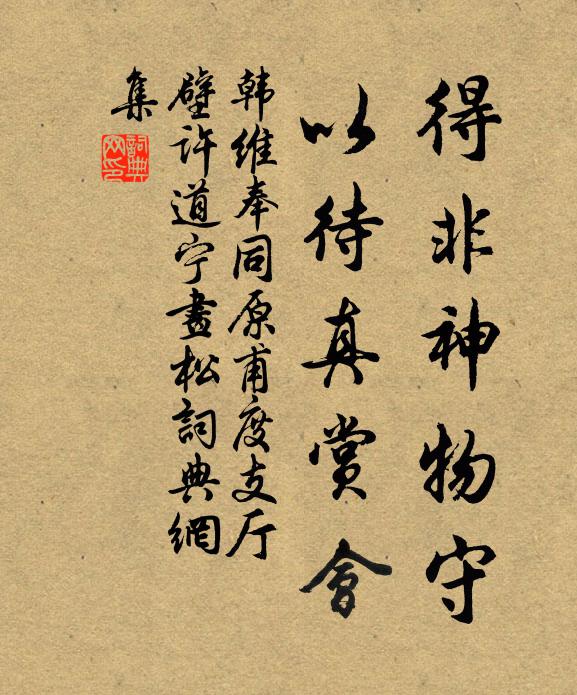 得非神物守
以待真赏會
韩维奉同原甫度支厅
壁许道宁畫松詞典網
集
詞典网印